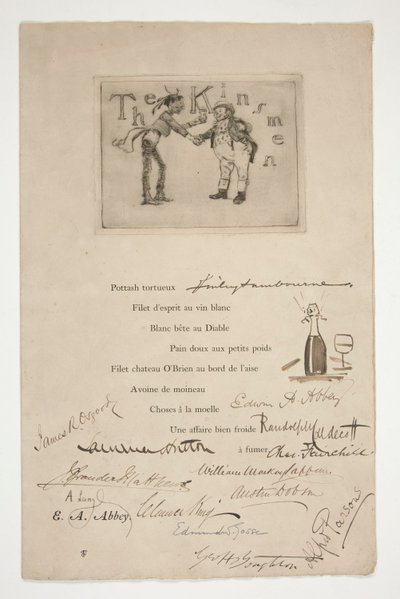 The Kinsmen
Pottash tortueux Linley Sambourne
Filet d'esprit au vin blanc
Blanc bête au Diable
Pain doux aux petits poids
Filet chateau O'Brien au bord de l'aise
Avoine de moineau
Choses à la moelle Edwin A. Abbey
James R Osgood
Une affaire bien froide Randolph Caldecott
Laurence Hutton à fumer Chas. Fairchild
Brander Matthews William Mackay Laffan
A Lang Austin Dobson
E. A. Abbey. Clarence King
Edmund Gosse
Alfred Parsons
Geo H Boughton